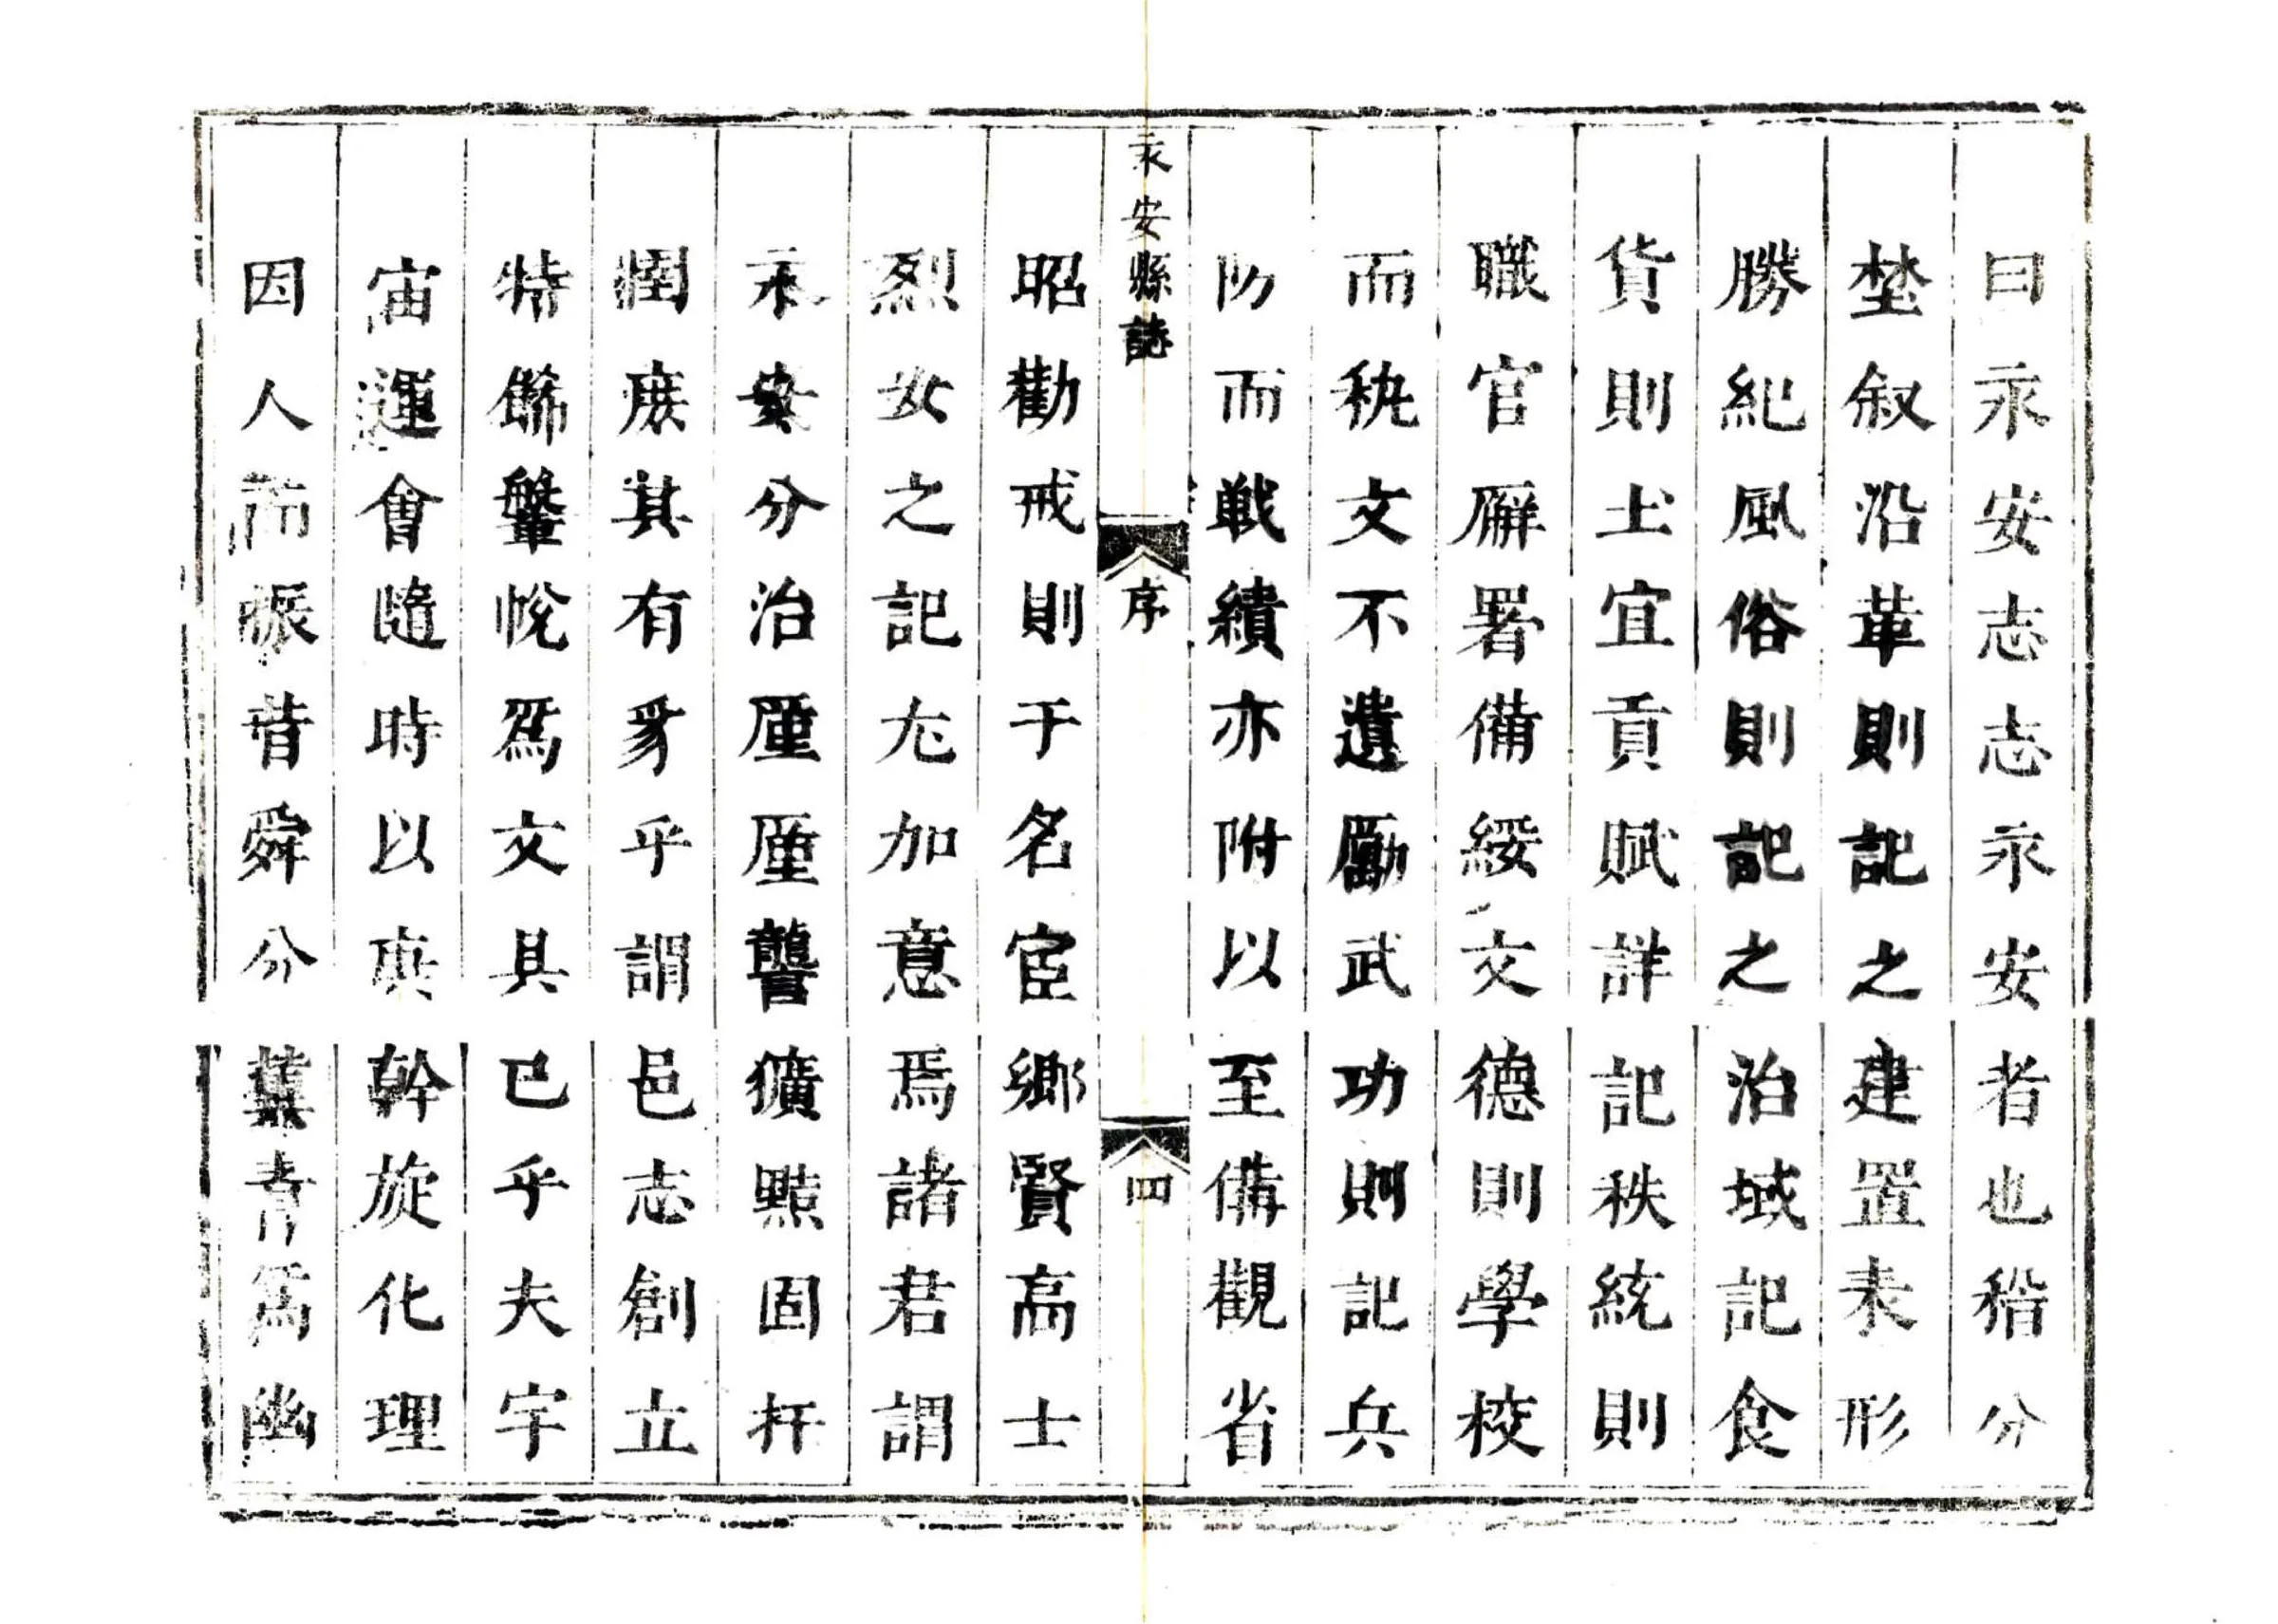 曰永安志志永安者也稽分
埜叙沿革則記之建置表形
勝紀風俗則記之治域記食
貨則土宜貢賦詳記秩統則
職官廨署備綏文德則學校
而秇文不遺勵武功則記兵
防而戦績亦附以至備觀省
永安縣誌
序
四
昭勸戒則于名宦鄉賢高士
烈女之記尤加意焉諸君謂
永安分治厘厘讋獷點固扞
圉庻其有豸乎謂邑志創立
特鯑鞶帨爲文具已乎夫宇
宙運會隨時以興幹旋化理
因人而振昔舜分冀青爲幽